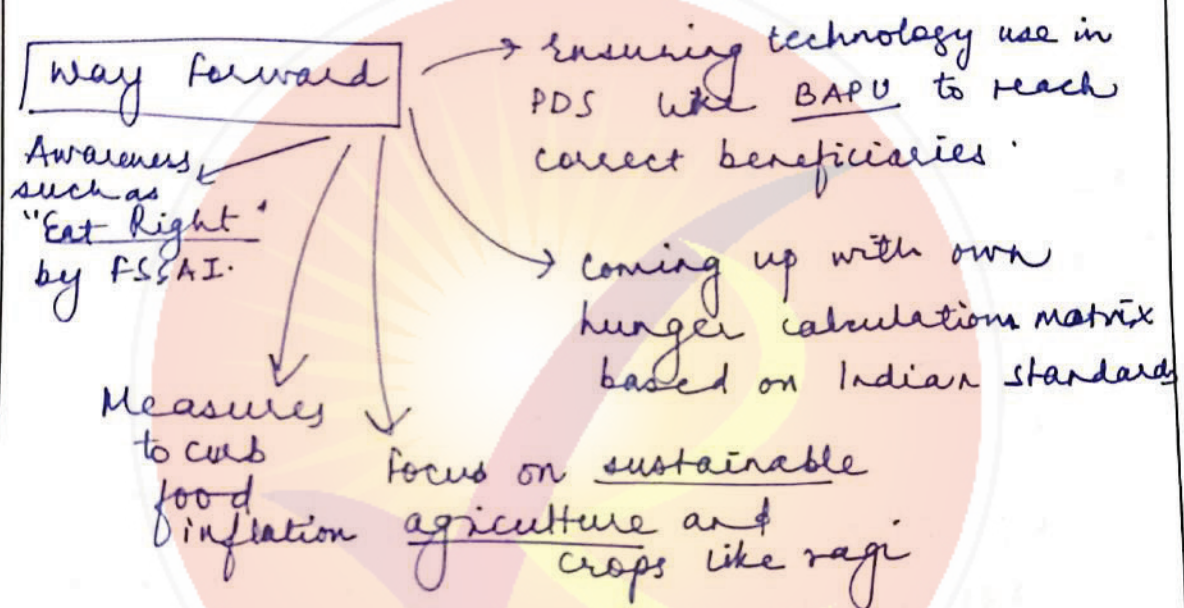 Way Forward
Ensuring technology use in
PDS like BAPU to reach
correct beneficiaries.
Awareness
such as
"Eat Right"
by FSSAI.
Coming up with own
hunger calculations matrix
based on Indian standards
Measures
to curb
food
inflation
Focus on sustainable
agriculture and
crops like ragi